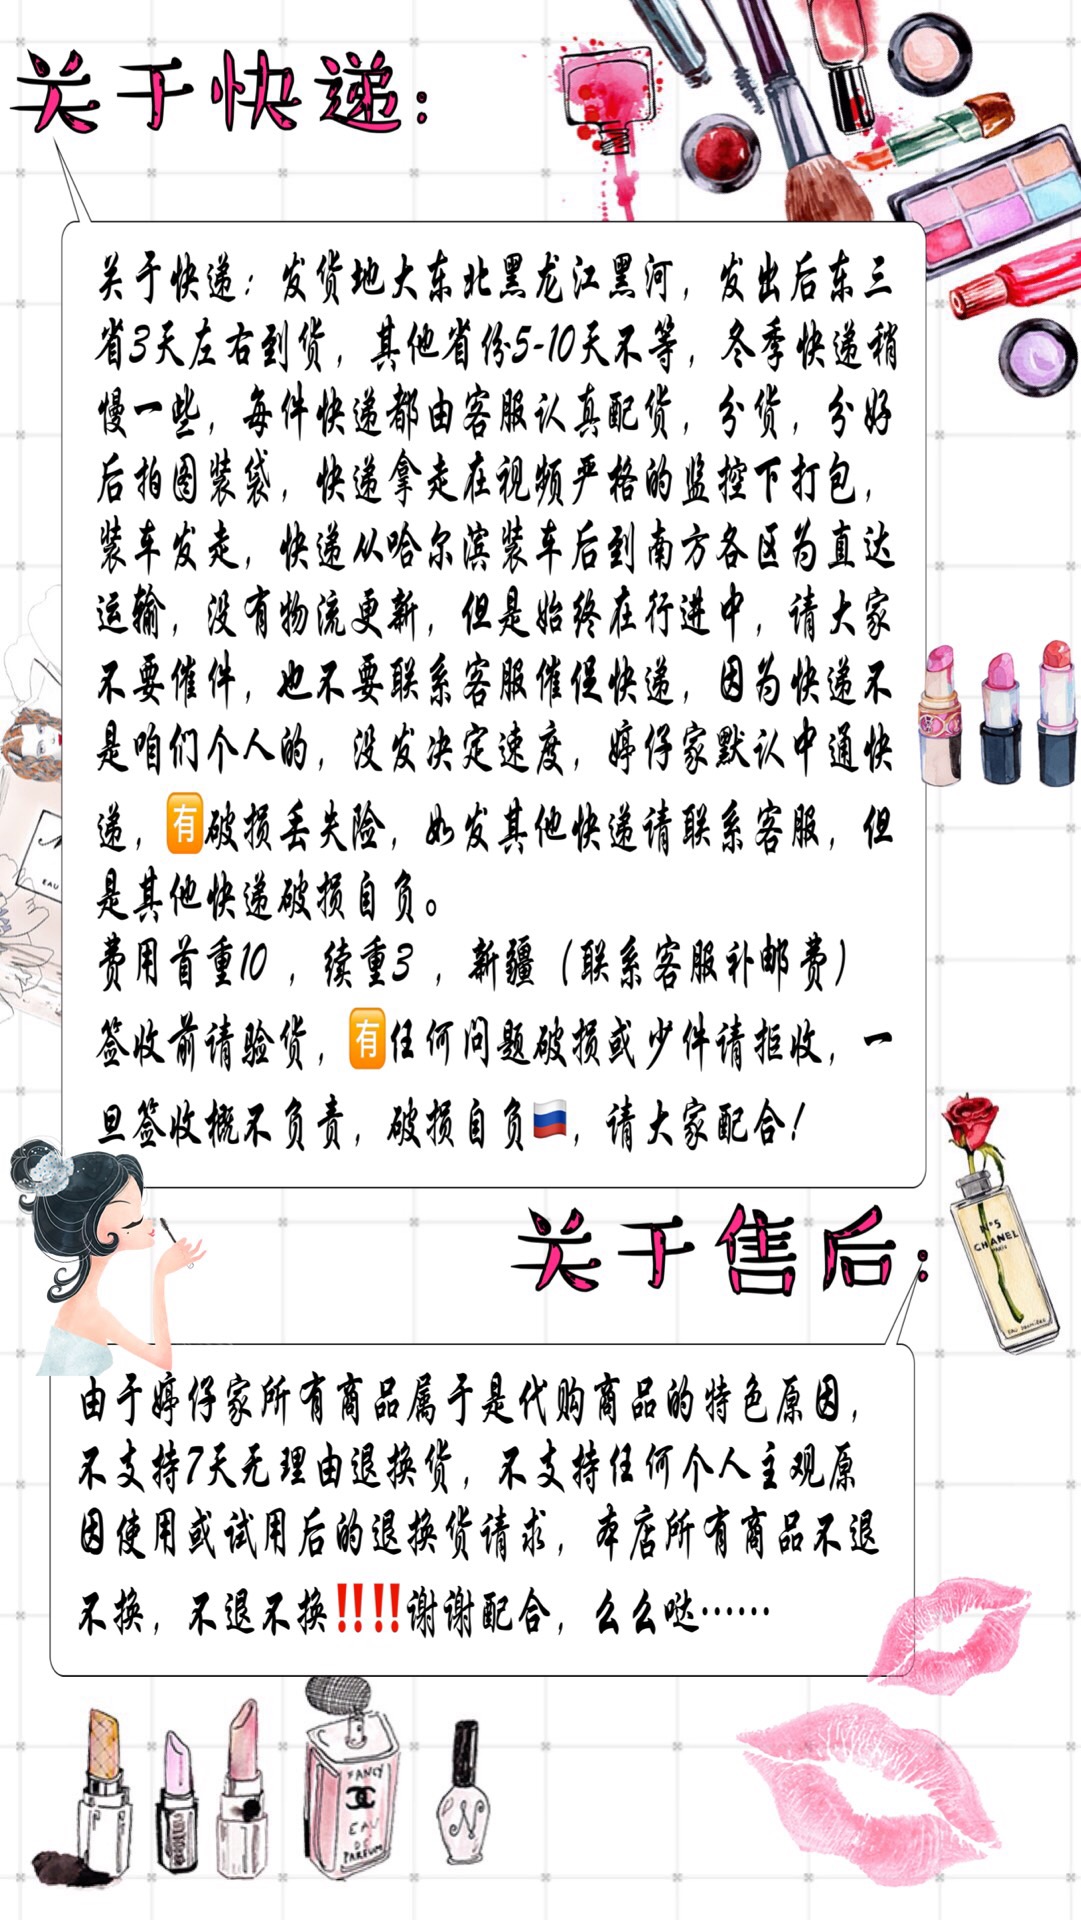 关于快递：
关于快递：发货地大东北黑龙江黑河，发出后东三
省3天左右到货，其他省份5-10天不等，冬季快递稍
慢一些，每件快递都由客服认真配货，分货，分好
后拍图装袋，快递拿走在视频严格的监控下打包，
装车发走，快递从哈尔滨装车后到南方各区为直达
运输，没有物流更新，但是始终在行进中，请大家
不要催件，也不要联系客服催促快递，因为快递不
是咱们个人的，没发决定速度，婷仔家默认中通快
递，🈶破损丢失险，如发其他快递请联系客服，但
是其他快递破损自负。
费用首重10 ，续重3 ，新疆（联系客服补邮费）
签收前请验货，🈶任何问题破损或少件请拒收，一
旦签收概不负责，破损自负🇷🇺，请大家配合！
关于售后：
N°5
CHANEL
PARIS
EAU PREMIÈRE
由于婷仔家所有商品属于是代购商品的特色原因，
不支持7天无理由退换货，不支持任何个人主观原
因使用或试用后的退换货请求，本店所有商品不退
不换，不退不换‼️‼️谢谢配合，么么哒……
FANCY
EAU
DE
PARFUM
EAU